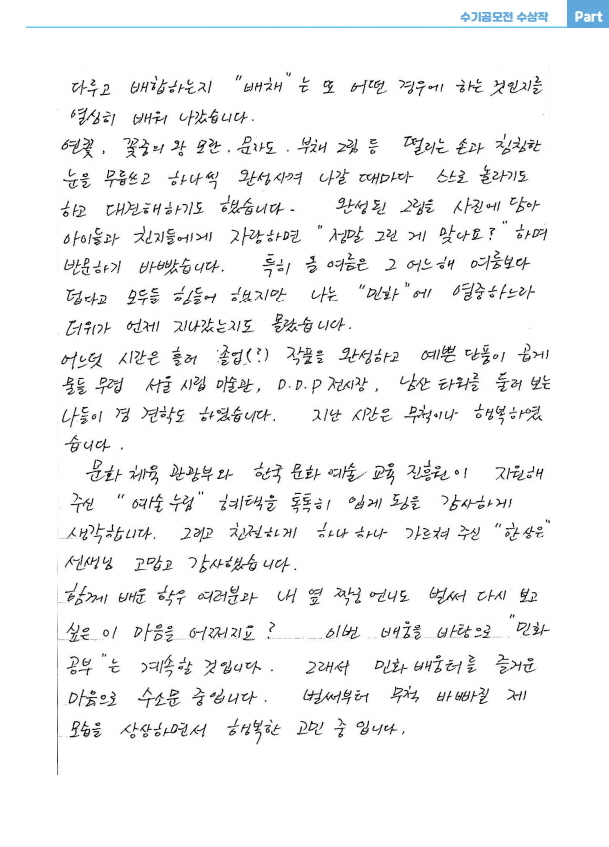 수기공모전 수상작
Part
다루고 배합하는지 "배채"는 또 어떤 경우에 하는 것인지를
열심히 배워 나갔습니다.
연꽃, 꽃중의 왕 모란, 문자도, 부채 그림 등 떨리는 손과 침침한
눈을 무릅쓰고 하나씩 완성시켜 나갈 때마다 스스로 놀라기도
하고 대견해하기도 했습니다. 완성된 그림을 사진에 담아
아이들과 친지들에게 자랑하면 "정말 그린 게 맞나요?" 하며
반문하기 바빴습니다. 특히 올 여름은 그 어느해 여름보다
덥다고 모두들 힘들어 했지만 나는 "민화"에 열중하느라
더위가 언제 지나갔는지도 몰랐습니다.
어느덧 시간은 흘러 졸업(?) 작품을 완성하고 예쁜 단풍이 곱게
물들 무렵 서울 시립 미술관, D.D.P 전시장, 남산 타워를 둘러 보는
나들이 겸 견학도 하였습니다. 지난 시간은 무척이나 행복하였
습니다.
문화 체육 관광부와 한국 문화 예술 교육 진흥원이 지원해
주신 "예술 누림" 혜택을 톡톡히 입게 됨을 감사하게
생각합니다. 그리고 친절하게 하나 하나 가르쳐 주신 "한상은"
선생님 고맙고 감사했습니다.
함께 배운 학우 여러분과 내 옆 짝궁 언니도 벌써 다시 보고
싶은 이 마음을 어쩌지요? 이번 배움을 바탕으로 "민화
공부"는 계속할 것입니다. 그래서 민화 배움터를 즐거운
마음으로 수소문 중입니다. 벌써부터 무척 바빠질 제
모습을 상상하면서 행복한 고민 중 입니다.